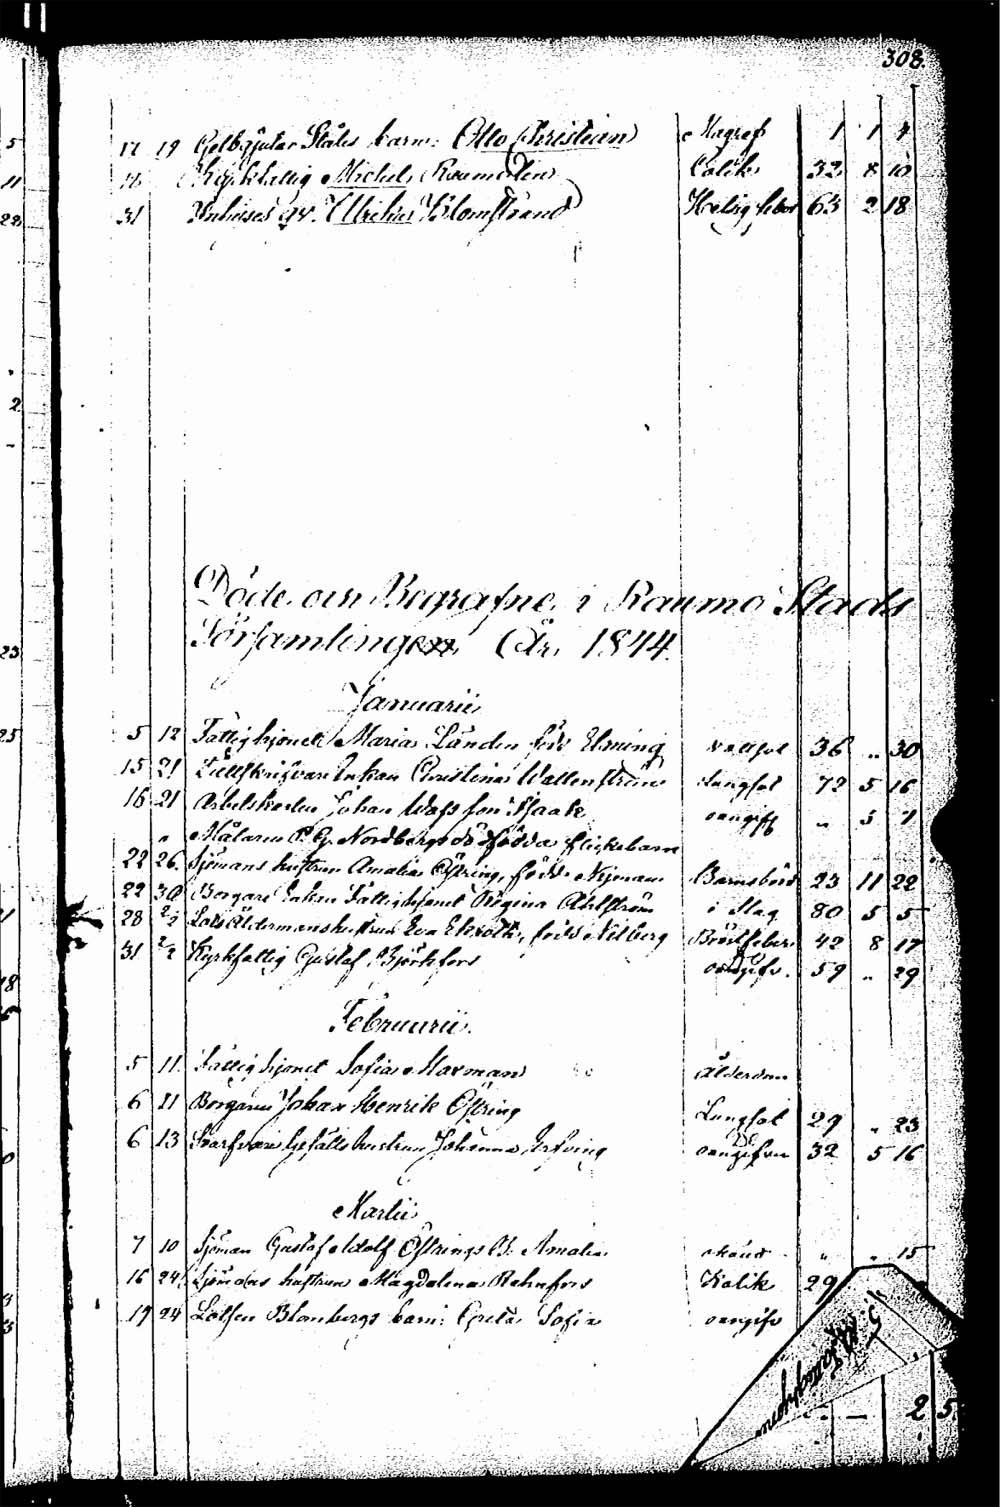 308.
17 19 Gelbgjutar Ståles barn: Otto Christian Magref 1 1 4
Kyrkfattig Michel Raumolin Colik 32 8 10
31 Inhises Ulrika Blomstrand Helsig feber 63 2 18
Döde och Begrafne i Raumo Stads
Församlingen År 1844.
Januarii
5 12 Fattighjonet Maria Lundin född Elming vattsot 36 .. 30
15 21 Tullskrifvare Enkan Christina Wallenström Lungsot 72 5 16
16 21 Arbetskarlen Johan Wass son Isaak oangift „ 3 7
„ Målaren P. G. Nordbergs dödfödda flickebarn
22 26. Sjömans hustrun Amalia Östring, född Nyman Barnsbörd 23 11 22
22 30 Borgare Enkan Fattighjonet Regina Ahlström i Slag 80 5 5
28 2/2 Lots Åldermans hustrun Eva Ekroth, född Nilberg Bröstfeber 42 8 17
31 2/2 Kyrkfattig Gustaf Björkfors oangifv. 59 .. 29
Februarii.
5 11. Fattighjonet Sofia Maxman ålderdom
6 21 Borgaren Johan Henrik Östring Lungsot 29 .. 23
6 13 Garfvare Gesälls hustrun Johanna oangifven 32 5 16
Martii
7 10 Sjöman Gustaf Adolf Östrings B: Amalia okänd „ .. 15
16 24 Sjömans hustrun Magdalena Rehnfors Kolik 29
19 24 Lotsen Blombergs barn: Greta Sofia oangifv
2 5